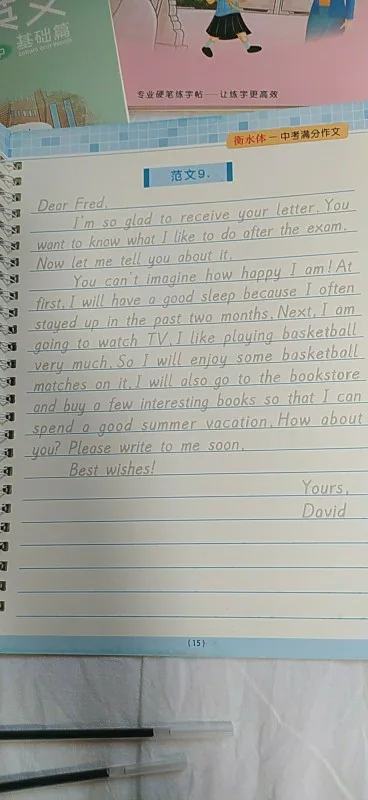 基础篇
专业硬笔练字帖——让练字更高效
衡水体—中考满分作文
范文9.
Dear Fred,
I'm so glad to receive your letter. You
want to know what I like to do after the exam.
Now let me tell you about it.
You can't imagine how happy I am! At
first, I will have a good sleep because I often
stayed up in the past two months. Next, I am
going to watch TV. I like playing basketball
very much. So I will enjoy some basketball
matches on it. I will also go to the bookstore
and buy a few interesting books so that I can
spend a good summer vacation. How about
you? Please write to me soon.
Best wishes!
Yours,
David
(15)